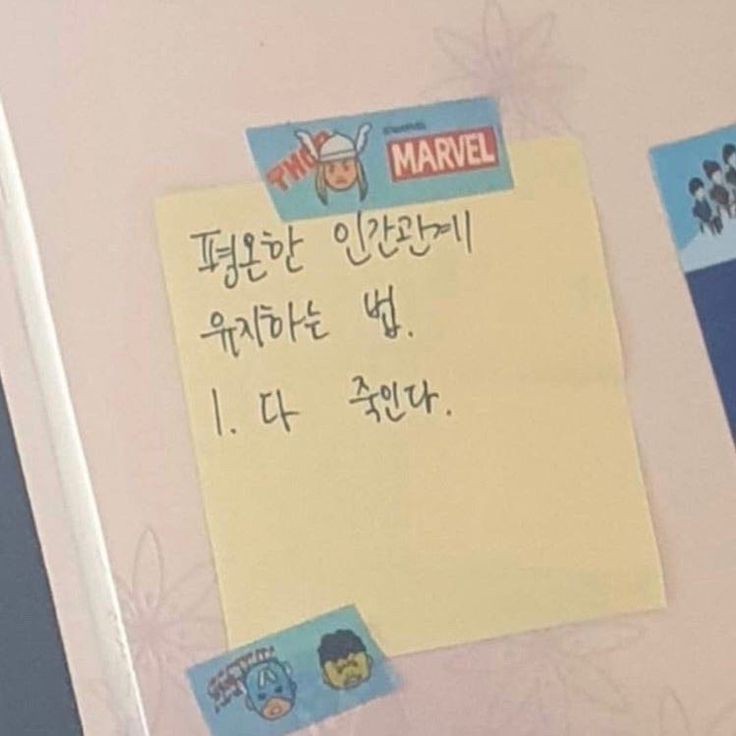 THOR
MARVEL
평온한 인간관계
유지하는 법.
1. 다 죽인다.